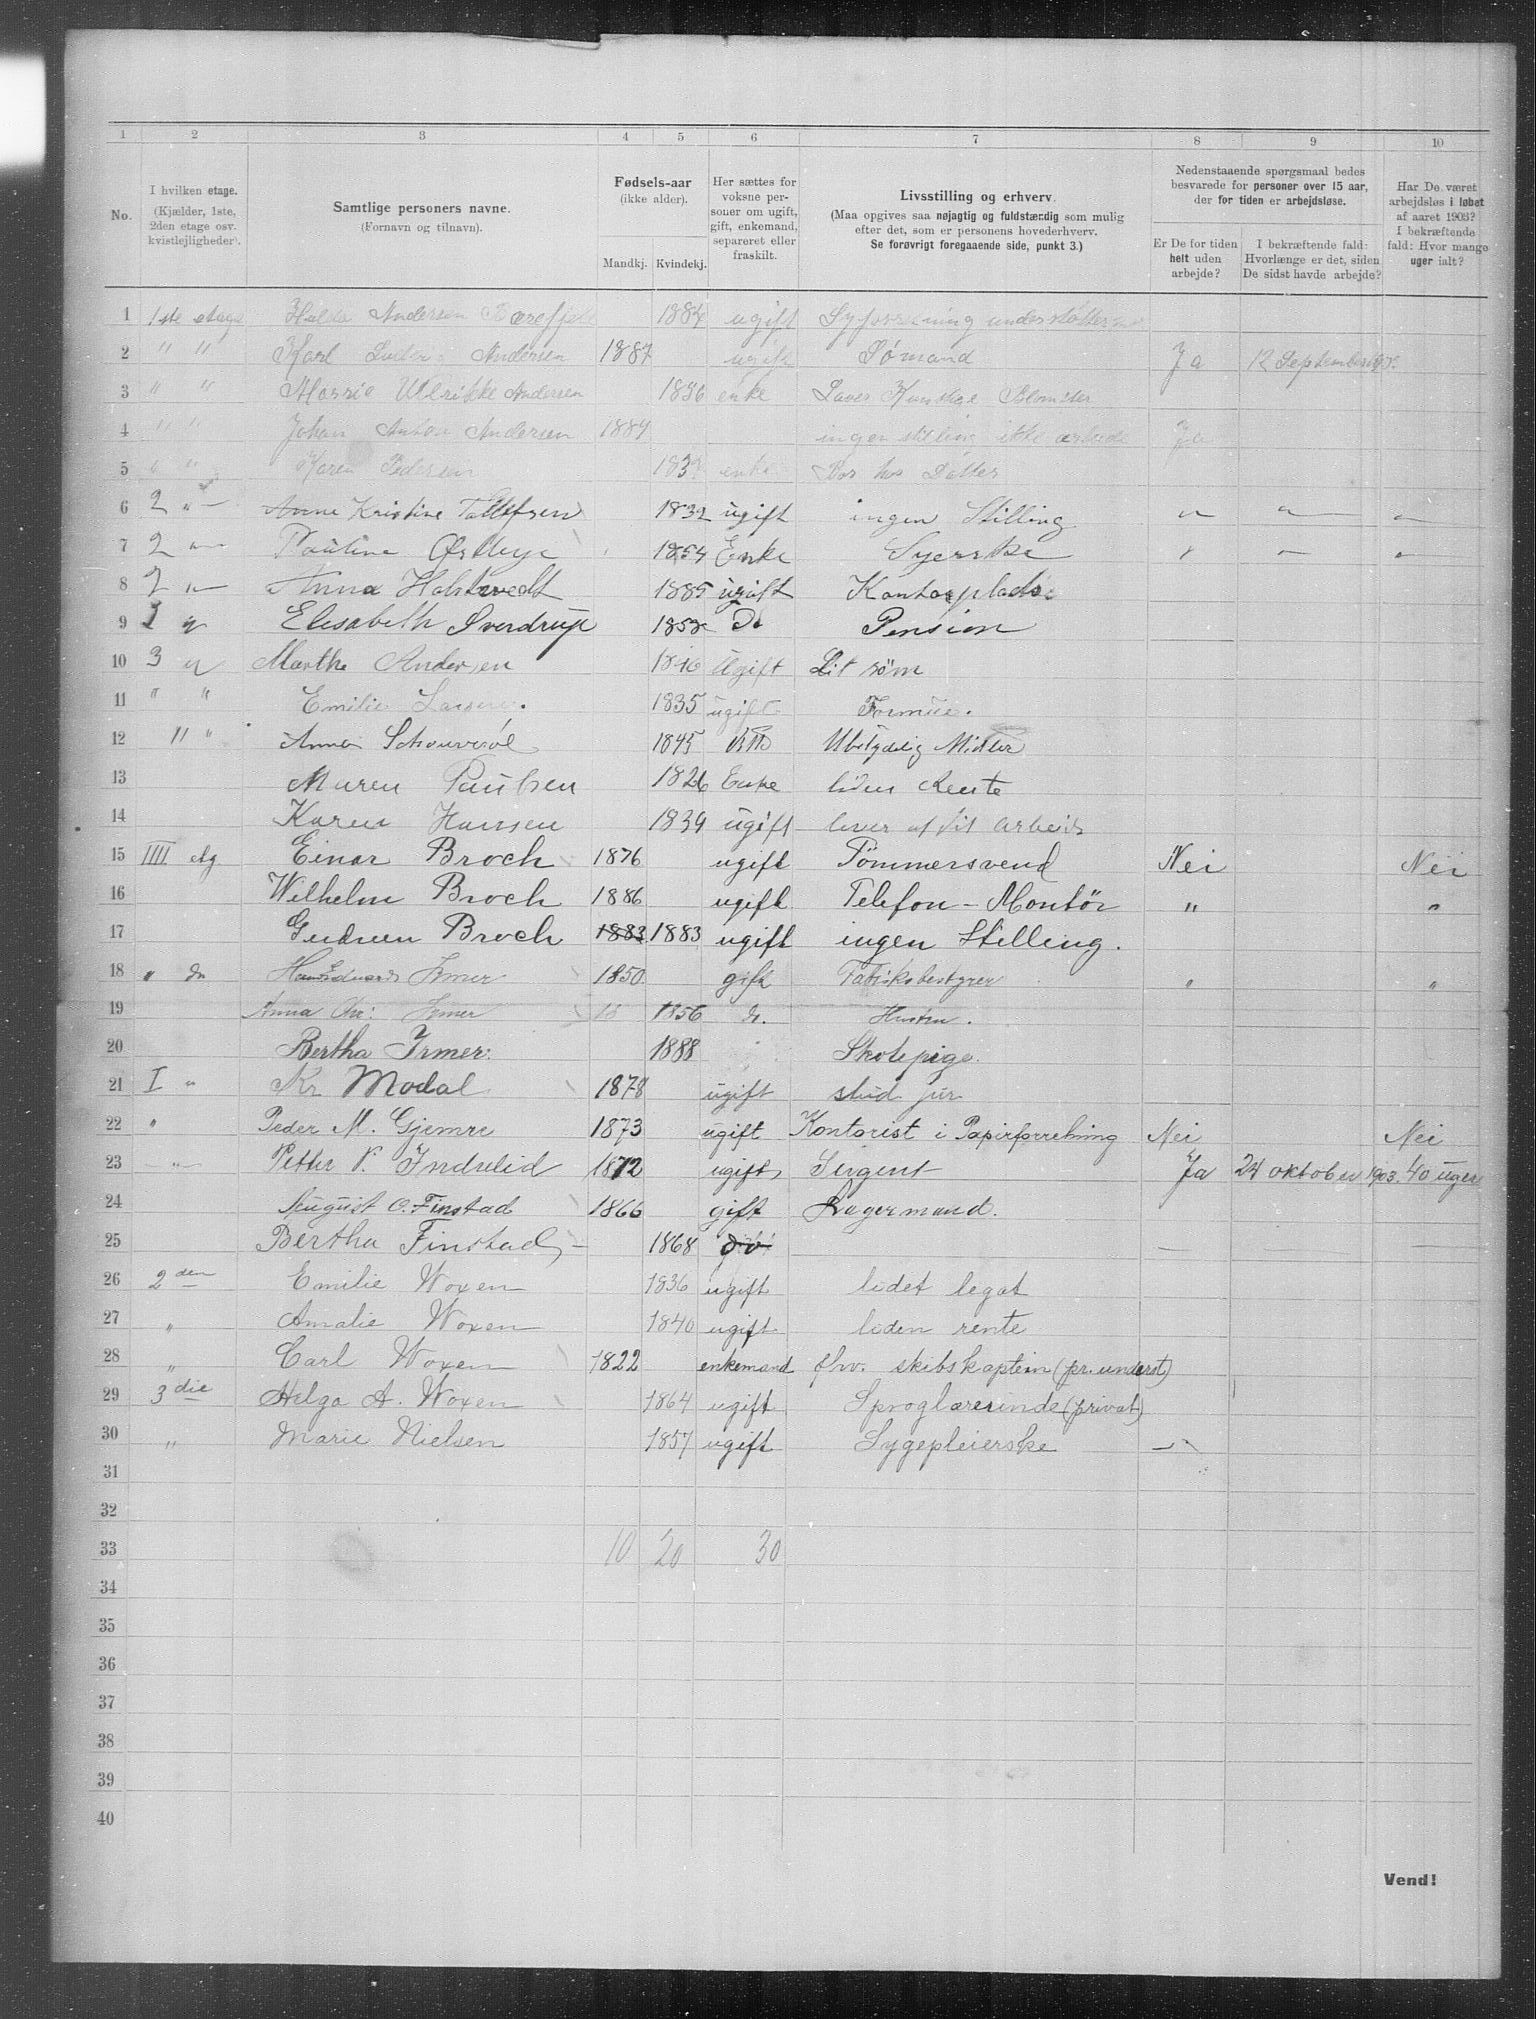 1 2 3 4 5 6 7 8 9 10
No.
I hvilken etage.
(Kjælder, 1ste,
2den etage osv.
kvistlejligheder).
Samtlige personers navne.
(Fornavn og tilnavn).
Fødsels-aar
(ikke alder).
Mandkj. Kvindekj.
Her sættes for
voksne per-
soner om ugift,
gift, enkemand,
separeret eller
fraskilt.
Livsstilling og erhverv.
(Maa opgives saa nøjagtig og fuldstændig som mulig
efter det, som er personens hovederhverv.
Se forøvrigt foregaaende side, punkt 3.)
Nedenstaaende spørgsmaal bedes
besvarede for personer over 15 aar,
der for tiden er arbejdsløse.
Er De for tiden
helt uden
arbejde?
I bekræftende fald:
Hvorlænge er det, siden
De sidst havde arbejde?
Har De været
arbejdsløs i løbet
af aaret 1903?
I bekræftende
fald: Hvor mange
uger ialt?
1 1ste etage Hulda Andersen 1884 ugift
2 " " Karl Andersen 1887 ugift Sømand Ja 12 September
3 " " Ulrikke Andersen 1856 enke Laver Blomster
4 " " Johan Anton Andersen 1889 ingen stilling ikke arbeide Ja
5 " " Karen Pedersen enke Bor hos Datter
6 2 " Anne Kristine Tollefsen 1832 ugift ingen Stilling " " "
7 2 " Pauline Østbye 1854 Enke Syerske " " "
8 2 " Anna 1885 ugift Kontorplads
9 1 " Elisabeth Sverdrup 1858 Do Pension
10 3 " Marthe Andersen ugift Lit søm
11 " " Emilie Larsen. 1835 ugift Formue.
12 " " Anna 1845 Ubetydelig Midler
13 Maren Paulsen 1826 Enke liden Rente
14 Karen Hansen 1839 ugift lever af sit arbeide
15 IIII etg Einar Broch 1876 ugift Tömmersvend Nei Nei
16 Wilhelm Broch 1886 ugift Telefon-Montör " "
17 Gudrun Broch 1883 1883 ugift ingen Stilling.
18 " do Hans Edvard Irmer 1850 gift Fabrikbestyrer " "
19 Anna Chr: Irmer 1856 do. Hustru.
20 Bertha Irmer. 1888 Skolepige.
21 I " Kr Modal 1878 ugift stud jur
22 " Peder M. Gjemre 1873 ugift Kontorist i Papirforretning Nei Nei
23 " Petter P. Indrelid 1872 ugift Sergent Ja 24 oktober 1903. 40 uger
24 August O. Finstad 1866 gift Lagermand.
25 Bertha Finstad, 1868 do
26 2den Emilie Woxen 1836 ugift lidet legat
27 " Amalie Woxen 1840 ugift liden rente
28 " Carl Woxen 1822 enkemand fhv. skibskaptein (pr. underst)
29 3die Helga A. Woxen 1864 ugift Sproglærerinde (privat)
30 " Marie Nielsen 1857 ugift Sygepleierske
31
32
33 10 20 30
34
35
36
37
38
39
40
Vend!